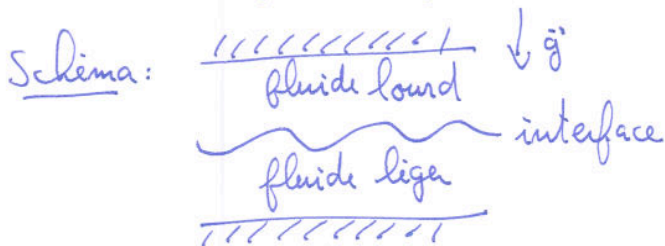 Schéma:
fluide lourd
g⃗
interface
fluide léger